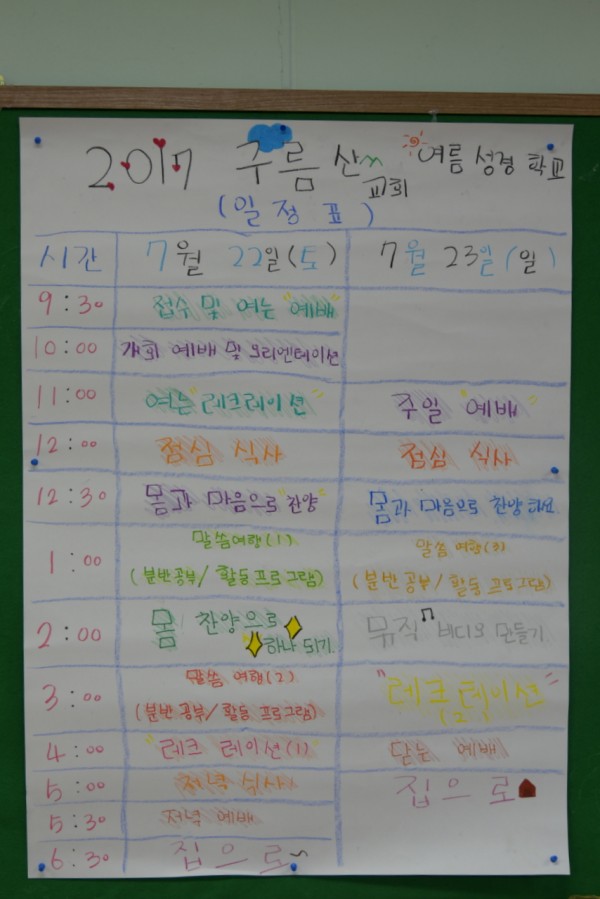 2017 구름산 교회 여름 성경 학교
(일정표)
시간 7월 22일(토) 7월 23일(일)
9:30 접수 및 여는 "예배"
10:00 개회 예배 및 오리엔테이션
11:00 여는 "레크레이션" 주일 "예배"
12:00 점심 식사 점심 식사
12:30 몸과 마음으로 "찬양" 몸과 마음으로 찬양
1:00 말씀여행(1) 말씀 여행(3)
(분반공부/활동프로그램) (분반공부/활동프로그램)
2:00 몸 찬양으로 하나 되기 뮤직 비디오 만들기
3:00 말씀 여행(2) "레크레이션"
(분반공부/활동 프로그램) (2)
4:00 "레크레이션(1)" 닫는 예배
5:00 저녁 식사 집으로
5:30 저녁 예배
6:30 집으로~